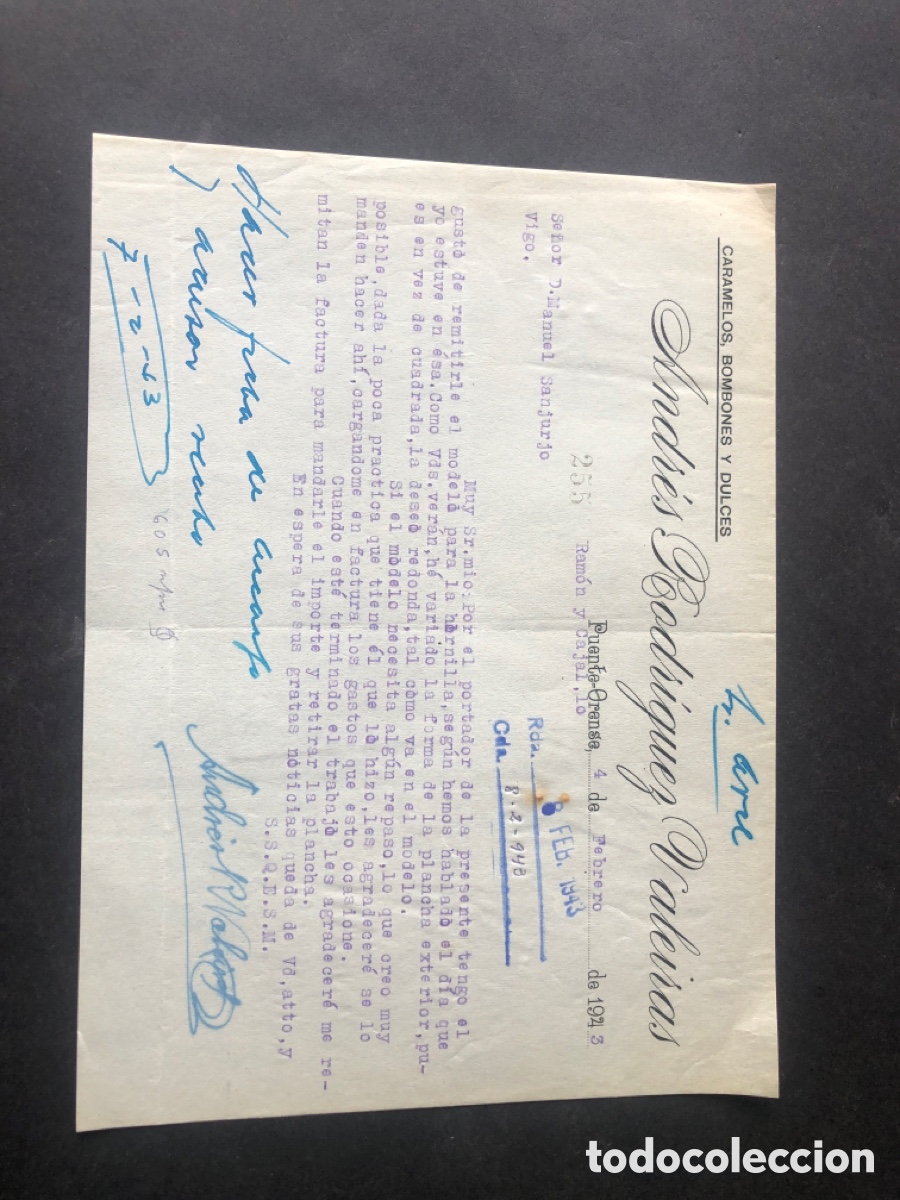 CARAMELOS, BOMBONES Y DULCES
Andrés Rodríguez Valeiras
Puente-Orense, 4 de Febrero de 1943
255 Ramón y Cajal, lo
Rda. 6 FEB. 1943
Cda. 8-2-943
Señor D.Manuel Sanjurjo
Vigo.
Muy Sr.mio:Por el portador de la presente tengo el
gusto de remitirle el modelo para la hornilla,según hemos hablado el día que
yo estuve en ésa.Como Vds.verán,hé variado la forma de la plancha exterior,pu-
es en vez de cuadrada,la deseo redonda,tal cómo va en el modelo.
Si el modelo necesita algún repaso,lo que creo muy
posible,dada la poca practica que tiene él que lo hizo,les agradeceré se lo
manden hacer ahí,cargandome en factura los gastos que esto ocasione.
Cuando esté terminado el trabajo les agradeceré me re-
mitan la factura para mandarle el importe y retirar la plancha.
En espera de sus gratas noticias queda de Vd,atto,y
S.S.Q.E.S.M.
Hacer ficha de
) avisar recibo
7-2-43
605
todocoleccion